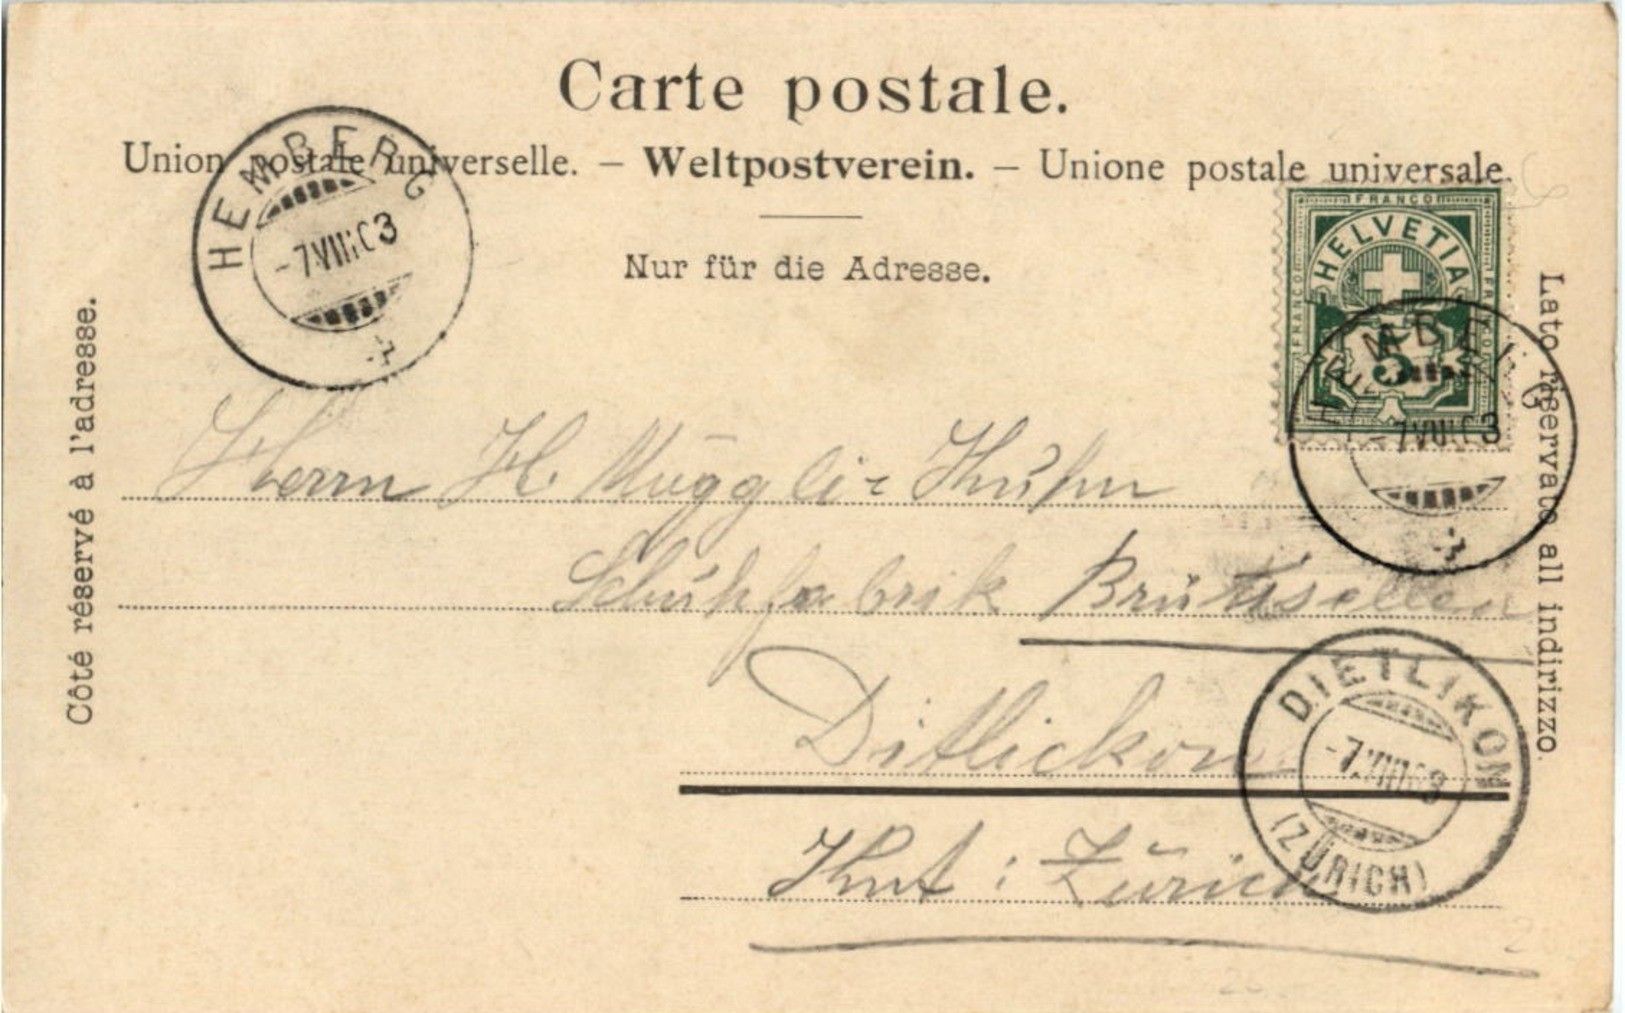 Carte postale.
Union postale universelle. – Weltpostverein. – Unione postale universale.
Nur für die Adresse.
Côté réservé à l'adresse.
Lato riservato all indirizzo.
HEMBERG
-7.VIII.03
FRANCO
FRANCO
FRANCO
HELVETIA
5
HEMBERG
-7.VIII.03
Herrn H. Muggli-Kuhn
Schuhfabrik Brüttisellen
Ditlickon
Knt: Zürich
DIETLIKON
-7.VIII.03
(ZÜRICH)